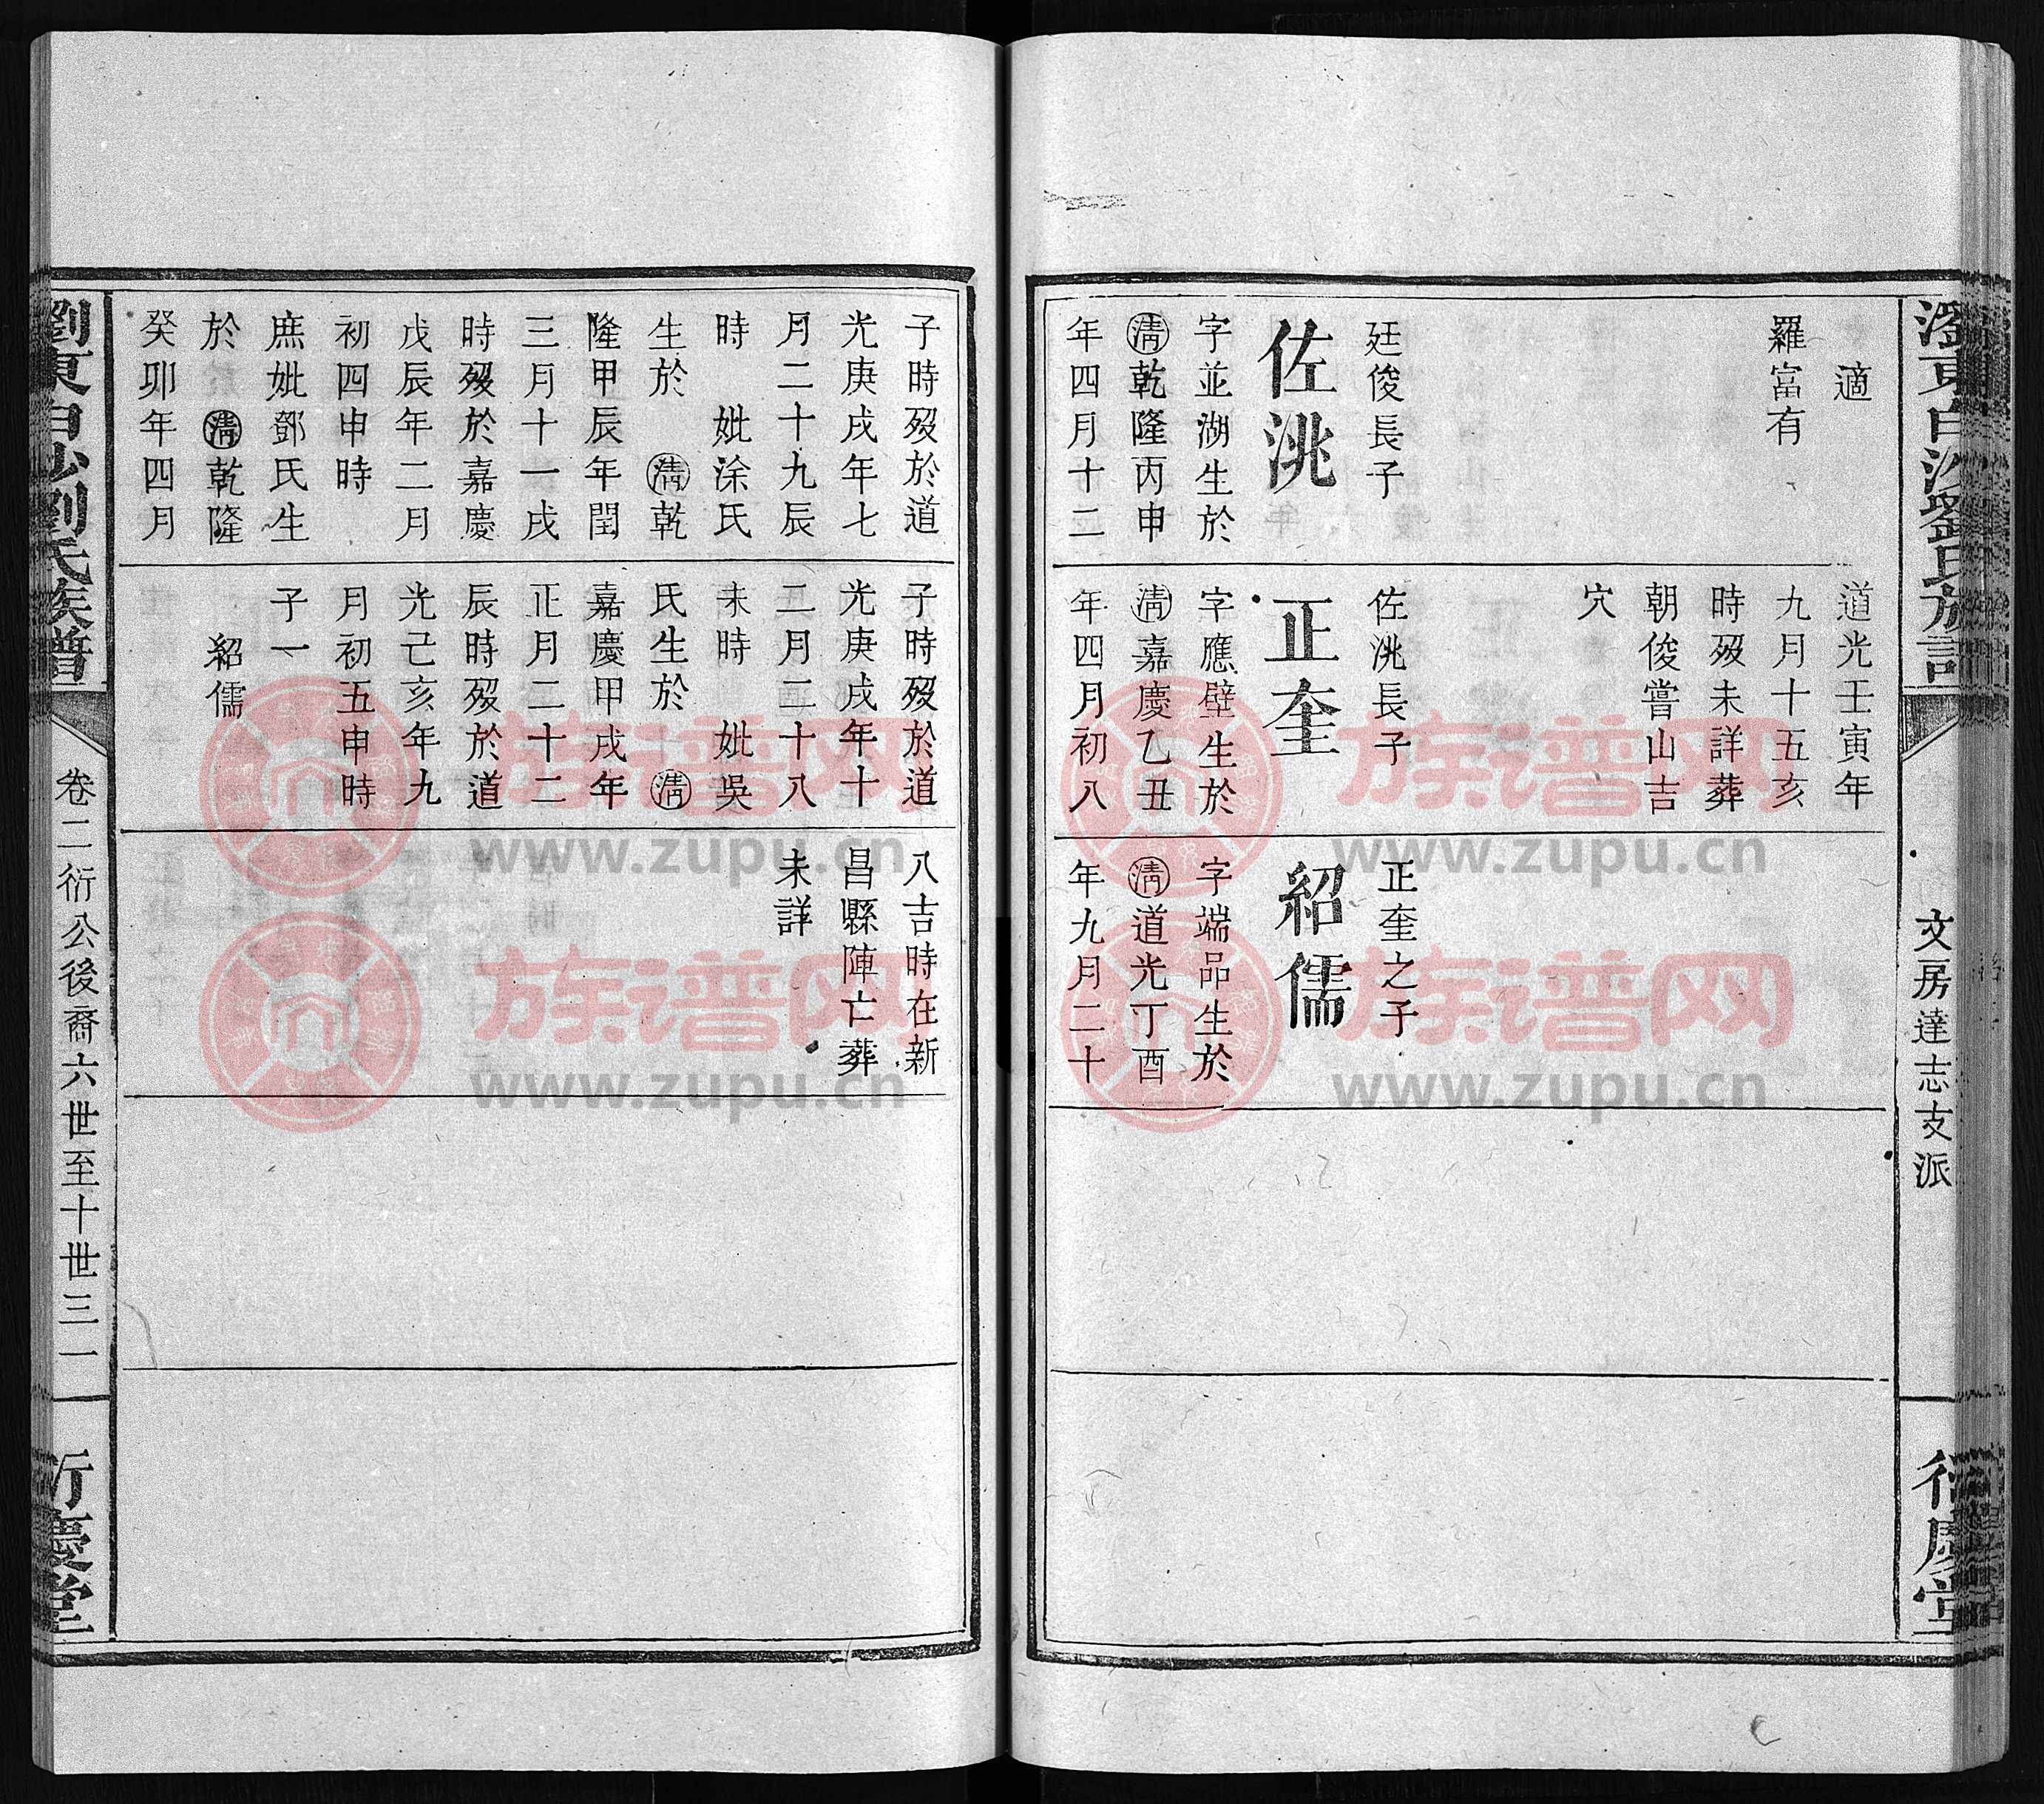 適
羅富有
廷俊長子
佐洮
字並湖生於
清乾隆丙申
年四月十二
道光壬寅年
九月十五亥
時歿未詳葬
朝俊嘗山吉
穴
佐洮長子
正奎
字應壁生於
清嘉慶乙丑
年四月初八
正奎之子
紹儒
字端品生於
清道光丁酉
年九月二十
文房達志支派
子時歿於道
光庚戌年七
月二十九辰
時 妣涂氏
生於 清乾
隆甲辰年閏
三月十一戌
時歿於嘉慶
戊辰年二月
初四申時
庶妣鄧氏生
於 清乾隆
癸卯年四月
子時歿於道
光庚戌年十
二月二十八
未時 妣吳
氏生於 清
嘉慶甲戌年
正月二十二
辰時歿於道
光己亥年九
月初五申時
子一
紹儒
八吉時在新
昌縣陣亡葬
未詳
劉氏族譜
卷二衍公後裔六世至十世三一
衍慶堂
族谱网
www.zupu.cn
族谱网
www.zupu.cn
族谱网
www.zupu.cn
族谱网
www.zupu.cn